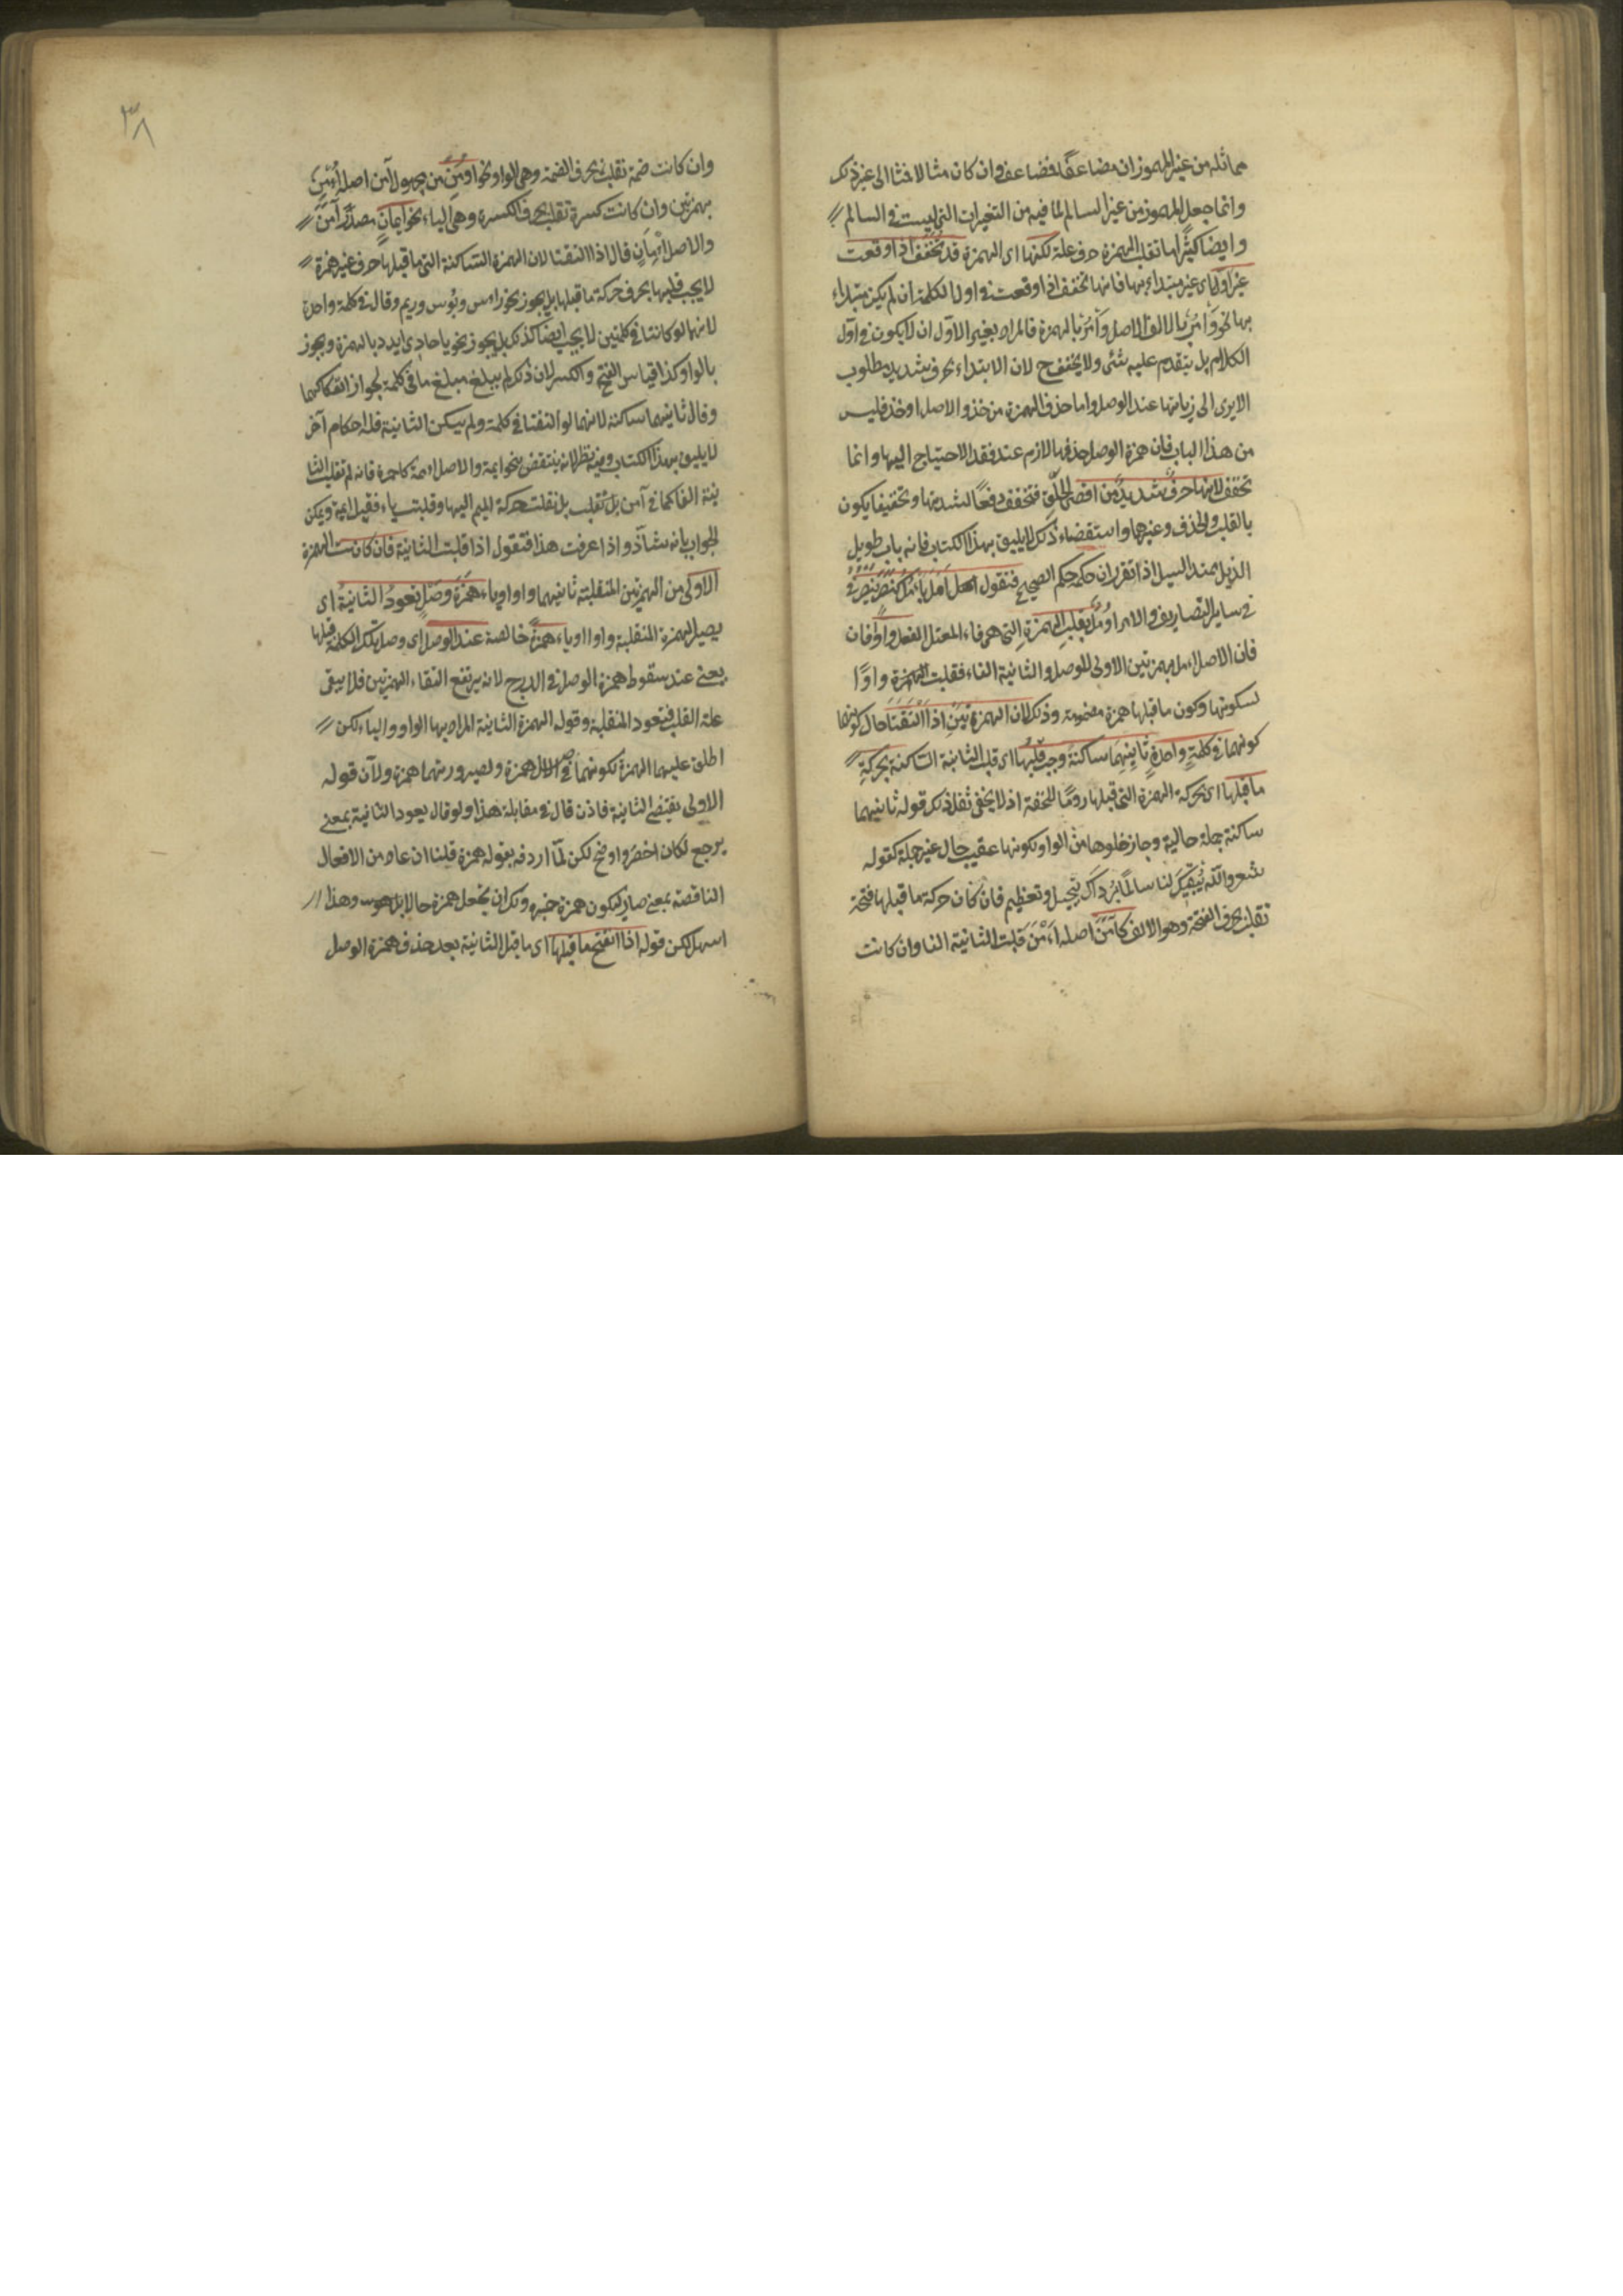 مماثله من غير المهموز ان مضاعفا فمضاعف وان كان مثالا فمثال الى غير ذلك
وانما جعل المهموز من غير السالم لما فيه من التغيرات التي ليست في السالم
وايضا كثيرا ما تقلب الهمزة حرف علة لكنها اى الهمزة قد تخفف اذا وقعت
غير اول اى غير مبتداء بها فانها تخفف اذا وقعت في اول الكلمة ان لم يكن مبتداء
بها نحو وامر بالالف الاصل وأمر بالهمزة فالمراد بغير الاول ان لا يكون في اول
الكلام بل يتقدم عليه شئ ولا يخفف ح لان الابتداء بحرف شديد مطلوب
الا يرى الى زيادتها عند الوصل واما حذف الهمزة من خذ والاصل اوخذ فليس
من هذا الباب فان همزة الوصل حذفها لازم عند فقد الاحتياج اليها وانما
تخفف لانها حرف شديد من اقصى الحلق فتخفف دفعا لشدتها وتخفيفها يكون
بالقلب والحذف وغيرهما واستقصاء ذلك لا يليق بهذا الكتاب فانه باب طويل
الذيل ممتد السيل اذا تقرر ان حكمه حكم الصحيح فنقول امل يأمل كنصر ينصر
في سائر التصاريف والامر اومل بقلب الهمزة التي هي فاء المعتل الفعل واوا فان
فان الاصل اءمل بهمزتين الاولى للوصل والثانية الفاء فقلبت الهمزة واوا
لسكونها وكون ما قبلها همزة مضمومة وذلك لان الهمزتين اذا التقتا حال كونهما
كونهما في كلمة واحدة ثانيهما ساكنة وجب قلبها اى قلب الثانية الساكنة بحركة
ما قبلها اى بحركة الهمزة التي قبلها روما للخفة اذ لا يخفى ثقل ذلك قوله ثانيهما
ساكنة جملة حالية وجاز خلوها من الواو لكونها عقيب حال غير جملة كقوله
شعر والله يبقيك لنا سالما برداك تبجيل وتعظيم فان كان حركة ما قبلها فتحة
تقلب بحرف الفتحة وهو الالف كآمن اصله أأمن قلبت الثانية الفا وان كانت
٣٨
وان كانت ضمة تقلب بحرف الضمة وهي الواو نحو اومن من مجهول آمن اصله أأمن
بهمزتين وان كانت كسرة تقلب بحرف الكسرة وهي الياء نحو ايمان مصدر آمن
والاصل إئمان قال اذا التقتا لان الهمزة الساكنة التي ما قبلها حرف غير همزة
لا يجب قلبها بحرف حركة ما قبلها بل يجوز نحو راس وبؤس وريم وقال في كلمة واحدة
لانهما لو كانتا في كلمتين لا يجب ايضا كذلك بل يجوز نحو يا حادى ايدد بالهمزة ويجوز
بالواو وكذا قياس الفتح والكسر لان ذلك لم يبلغ مبلغ ما في كلمة لجواز انفكاكهما
وقال ثانيهما ساكنة لانهما لو التقتا في كلمة ولم يسكن الثانية فله احكام آخر
لا يليق بهذا الكتاب وفيه نظر لانه ينتقض بنحو ايمة والاصل اءممة كاحمرة فانه لم تقلب الثا
نية الفا كما في آمن بل تقلب بل نقلت حركة الميم اليها وقلبت ياء فقيل ايمة ويمكن
الجواب بانه شاذ واذا عرفت هذا فنقول اذا قلبت الثانية فان كانت الهمزة
الاولى من الهمزتين المنقلبة ثانيهما واوا او ياء همزة وصل تعود الثانية اى
يصير الهمزة المنقلبة واوا او ياء همزة خالصة عند الوصل اى وصل تلك الكلمة قبلها
يعني عند سقوط همزة الوصل في الدرج لانه يرتفع التقاء الهمزتين فلا يبقى
علة القلب فتعود المنقلبة وقوله الهمزة الثانية المراد بها الواو والياء لكن
اطلق عليهما الهمزة لكونهما في الاصل همزة ولصيرورتهما همزة ولان قوله
الاولى يقتضي الثانية فاذن قال في مقابلة هذا ولو قال يعود الثانية بمعنى
يرجع لكان اخصر واوضح لكن لما اردفه بقوله همزة قلنا ان عاد من الافعال
الناقصة بمعنى صار ليكون همزة خبره ولك ان تجعل همزة حالا بل هو وهذا
اسهل لكن قوله اذا انفتح ما قبلها اى ما قبل الثانية بعد حذف همزة الوصل